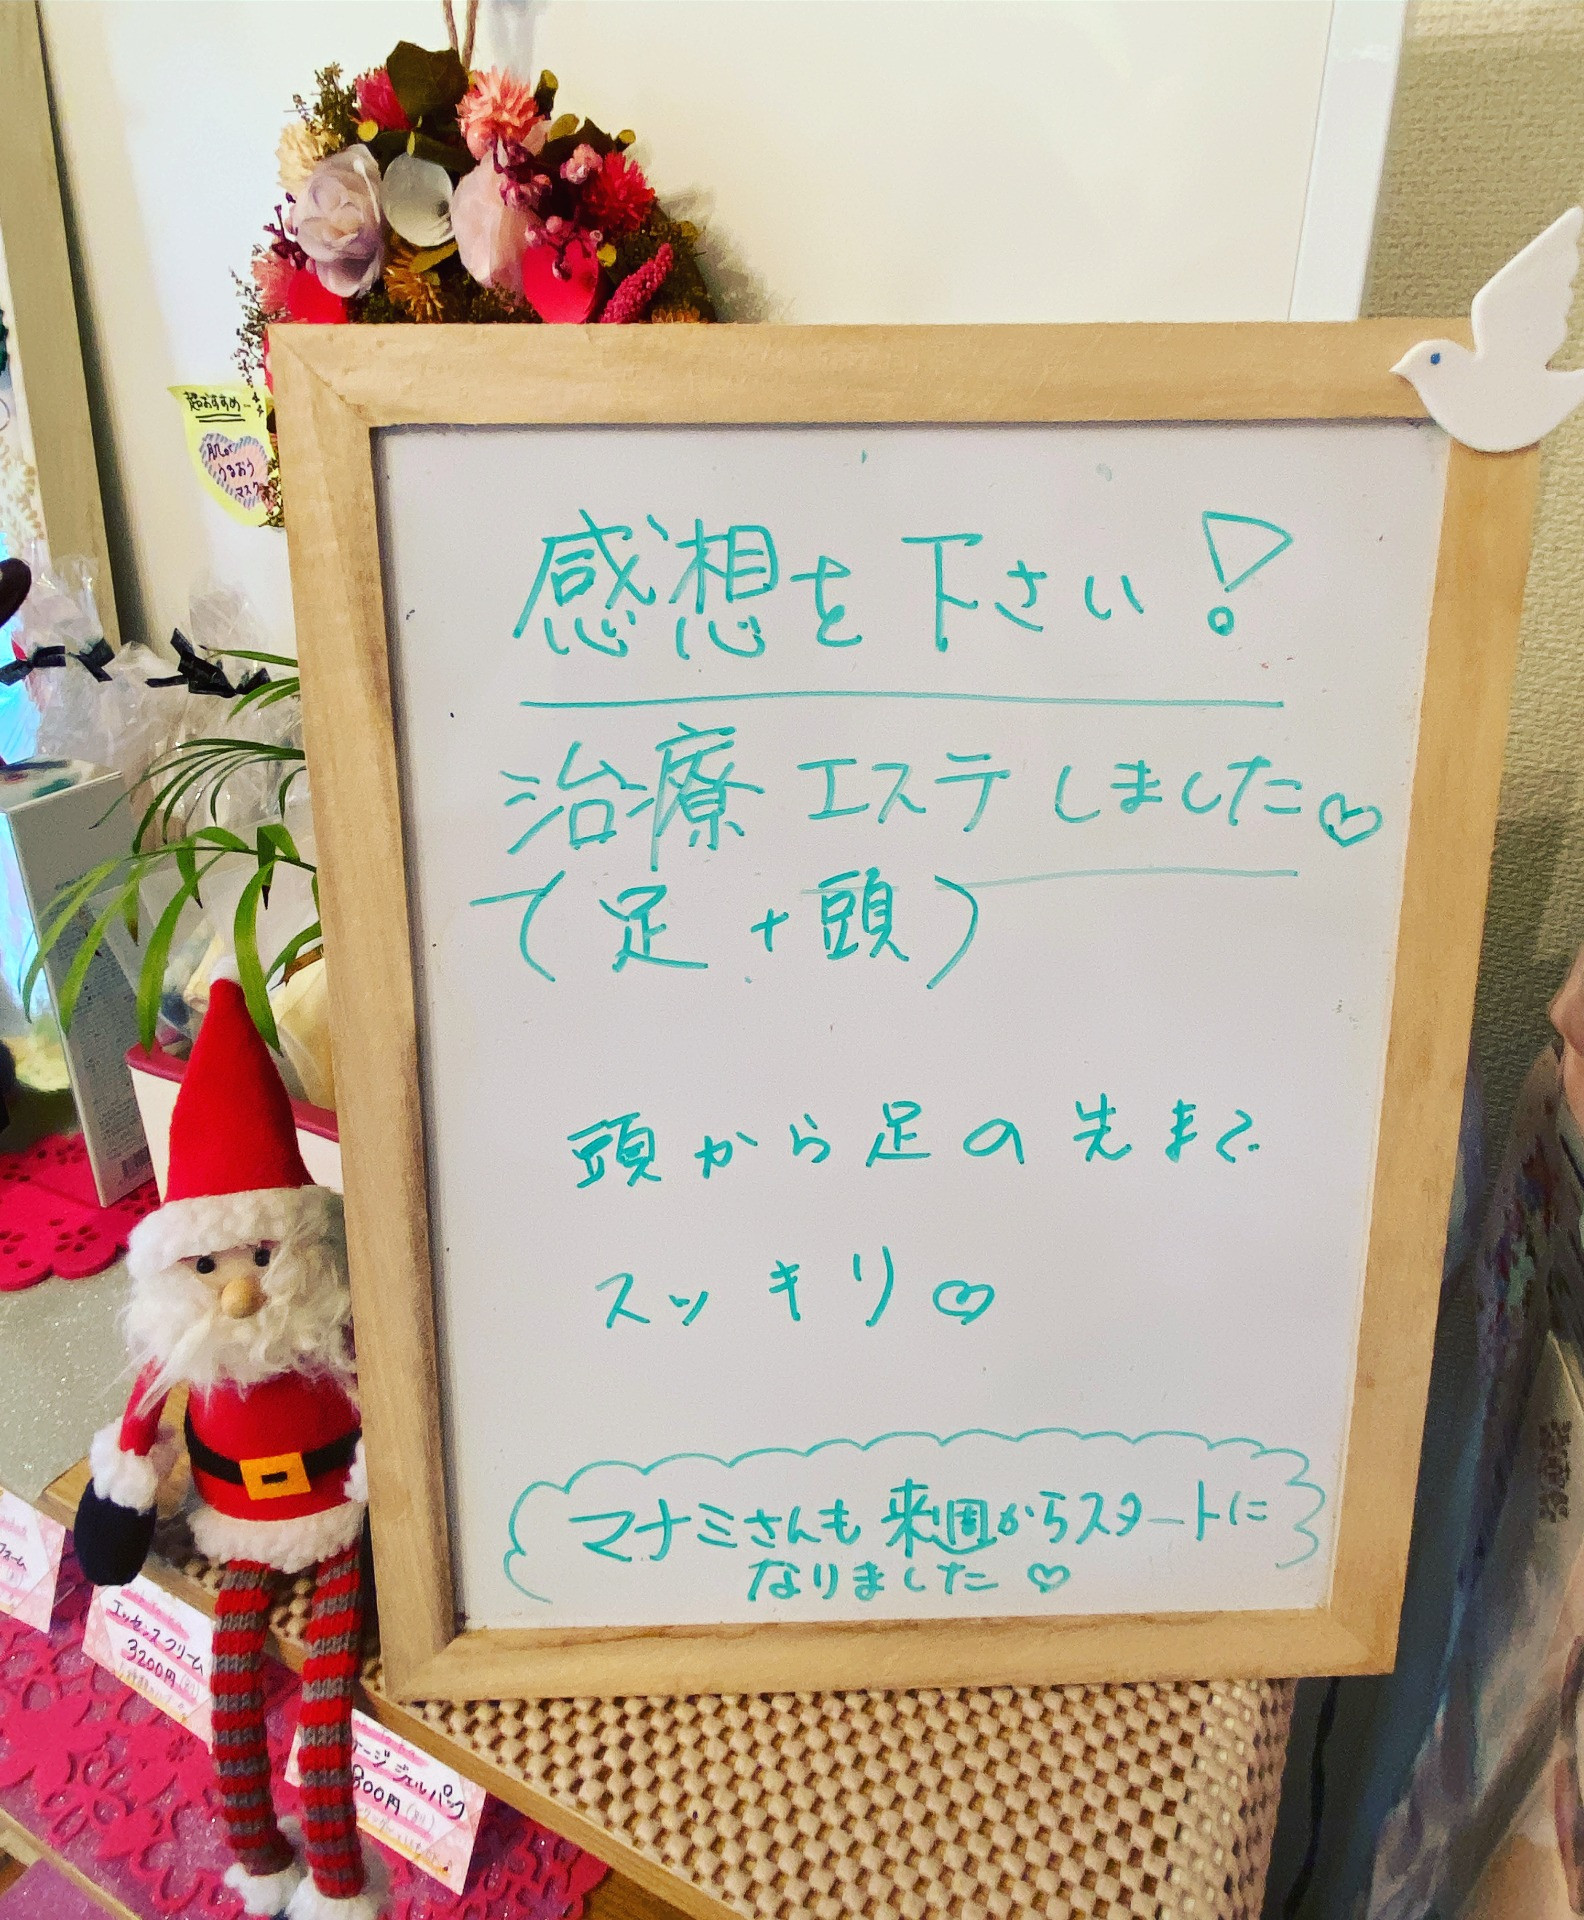 超おすすめ
肌が
うるおう
マスク
感想を下さい!
治療エステしました♡
(足+頭)
頭から足の先まで
スッキリ♡
マナミさんも来週からスタートに
なりました♡
ォーム
エッセンスクリーム
3200円
ージジェルパック
800円